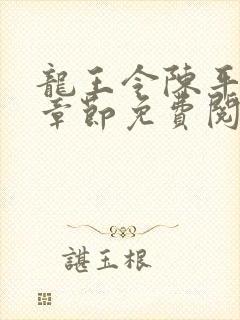 龍王令陳平
章節免費閱
諶玉根